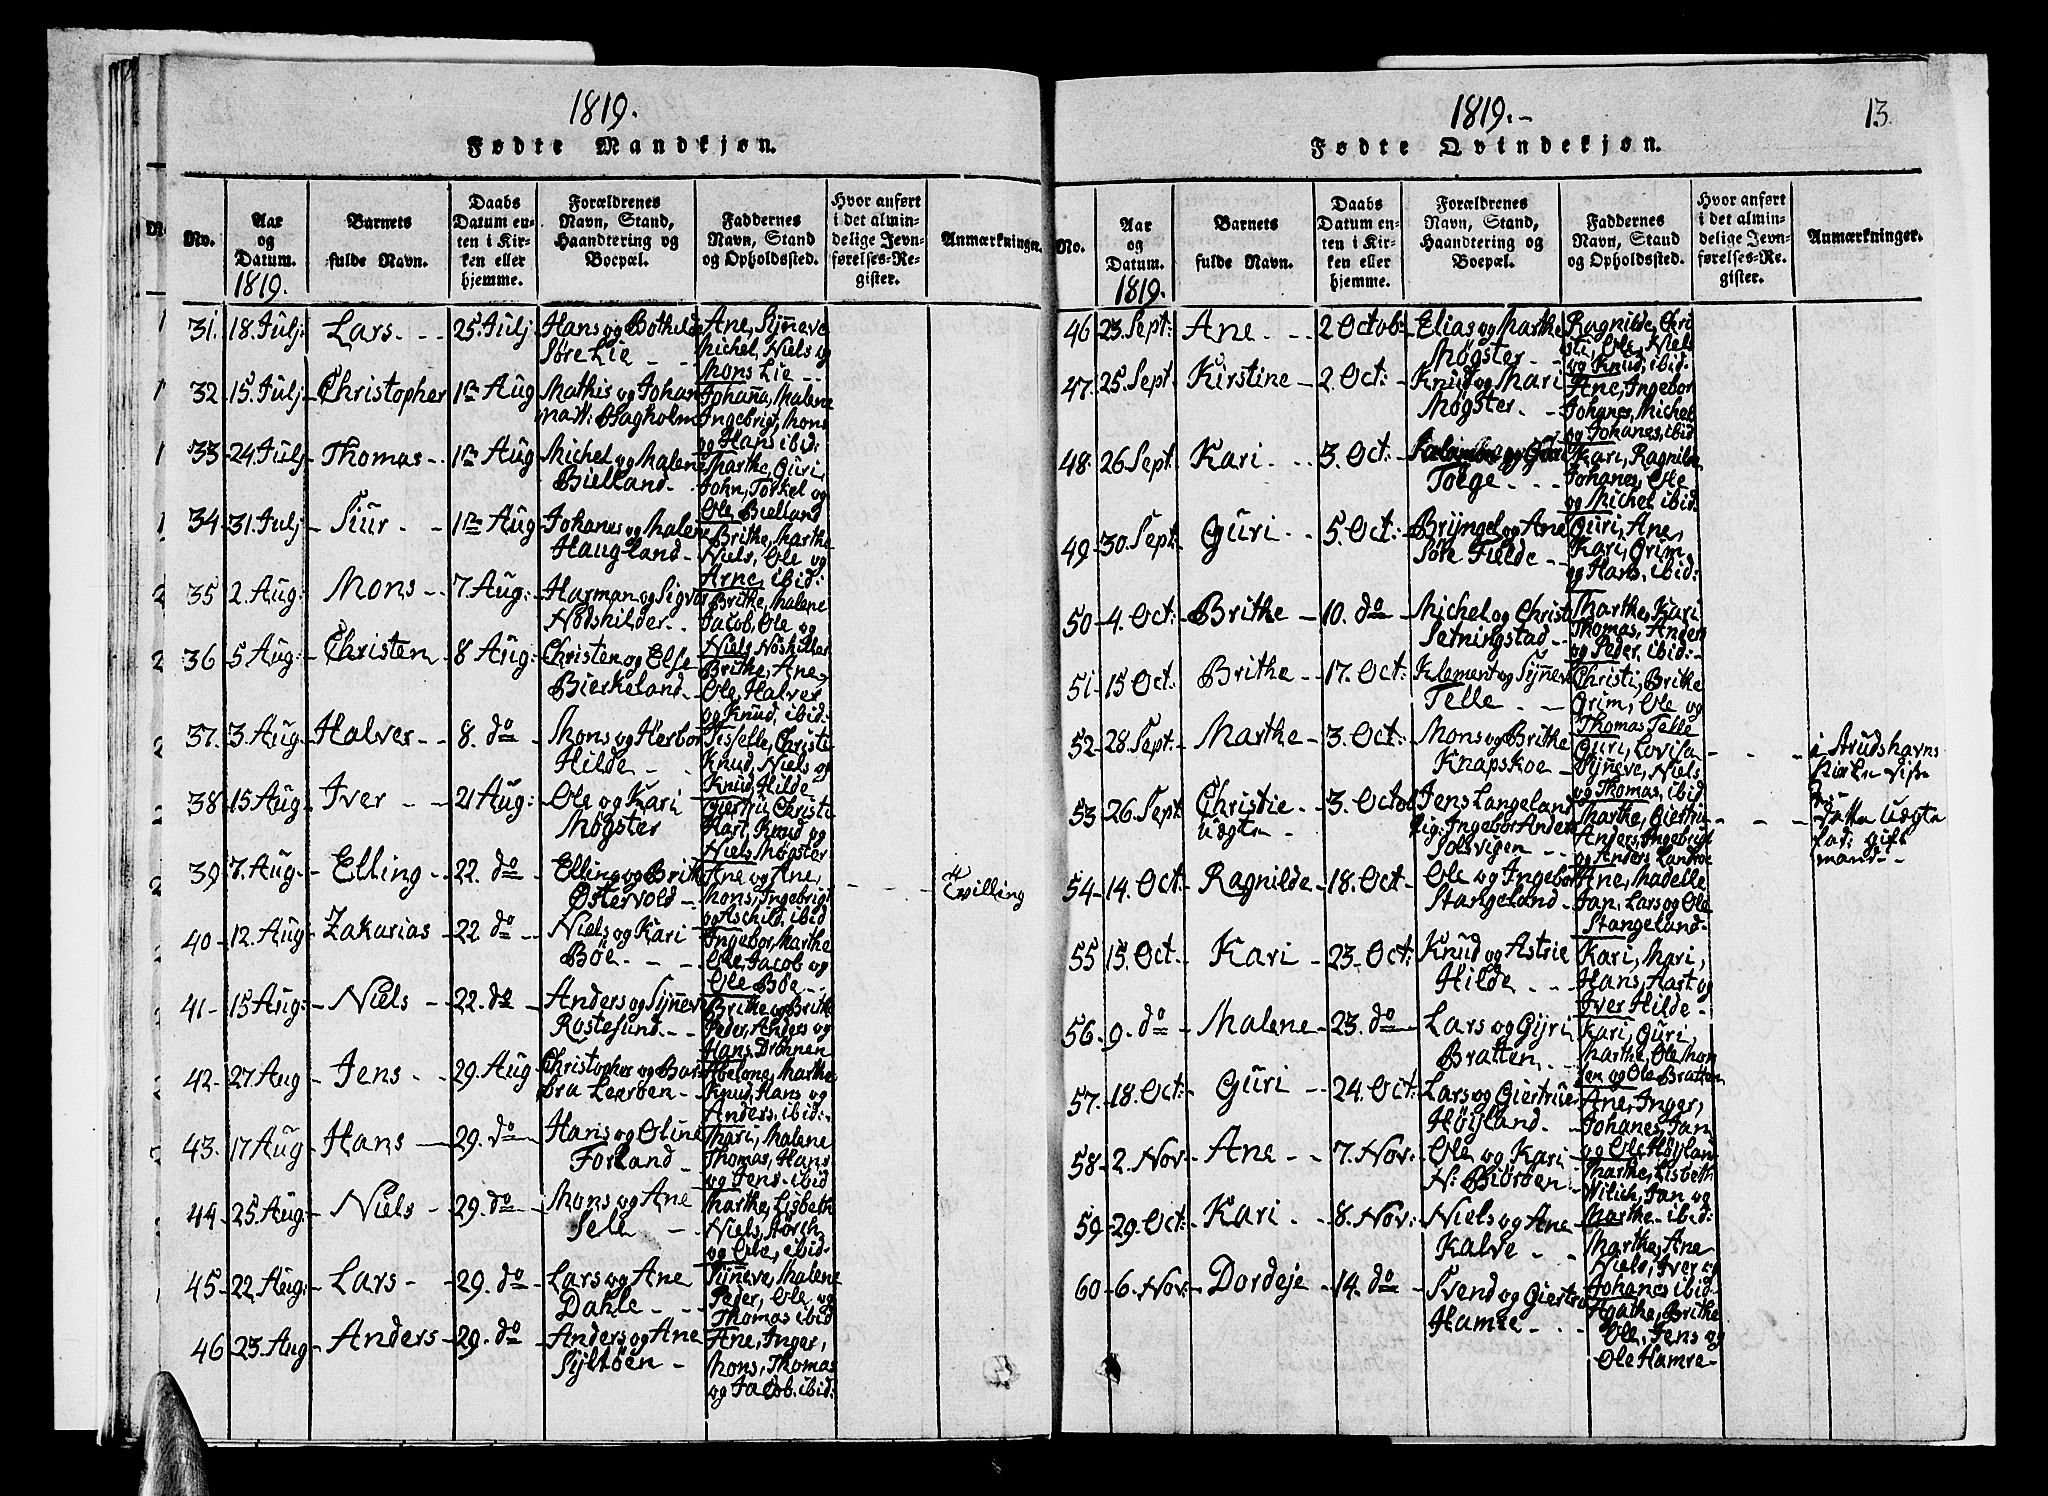 1819.
Fødte Mandkjøn.
No.
Aar
og
Datum.
1819.
Barnets
fulde Navn.
Daabs
Datum en-
ten i Kir-
ken eller
hjemme.
Forældrenes
Navn, Stand,
Haandtering og
Boepæl.
Faddernes
Navn, Stand
og Opholdssted.
Hvor anført
i det almin-
delige Jevn-
førelses-Re-
gister.
Anmærkninger.
31. 18 Julj: Lars - - 25. Julj Hans og Bothilde
Søre Lie - -
Ane, Sÿneve
Michel, Niels og
Mons Lie
32 15 Julj Christopher 1ste Aug Mathis og Johan
na
Johana, Malene
Ingebrigt, Mons
og Hans ibid:
33 24 Julj Thomas - - 1ste Aug Michel og Malene
Bielland - -
Marthe, Guri,
John, Torkel og
Ole Bielland
34 31 Julj Siur - - 1ste Aug Johanes og Malene
Haugland -
Brithe, Marthe
Niels, Ole og
Arne, ibid:
35 2. Aug: Mons - - 7. Aug: Harman og
Brithe, Malene
Jacob, Ole og
Niels
36 5 Aug: Christen 8 Aug: Christen og Else
Bierkeland -
Brithe, Ane,
Ole, Halver
og Knud, ibid:
37. 3. Aug Halver - - 8. do Mons og Herbor
Hilde - -
Christi
Knud, Niels og
Knud Hilde
38 15 Aug Iver - - 21 Aug: Ole og Kari
Møgster
Christi
Kari, Knud og
Niels Møgster
39 7. Aug Elling - 22. do Elling og Brithe
Østervold -
Ane og Ane,
Mons, Ingebrigt
og Aschild, ibid
Tvilling
40 12. Aug Zakarias 22 do Niels og Kari
Böe - - -
Ingebor, Marthe
Ole, Jacob og
Ole Böe - -
41 - 15 Aug: Niels - 22. do Anders og Sÿneve
Rostesund - -
Brithe og Brithe
Peder, Anders og
Hans Drönnen
42. 27 Aug Jens - - 29. Aug Christopher og Bar
bra Leeröen -
Abelone, Marthe
Knud, Hans og
Anders, ibid:
43. 17 Aug Hans - 29. do Hans og Oline
Forland -
Mari, Malene
Thomas, Hans
og Jens - ibid
44 25. Aug: Niels - 29. do Mons og Ane
-
Marthe, Lisbeth
Niels,
og Ole, ibid-
45 - 22. Aug: Lars - - 29. do Lars og Ane
Dahle - -
Sÿneve, Malene
Peder, Ole og
Thomas ibid
46 23. Aug Anders - 29. do Anders og Ane
Syltöen -
Ane, Inger,
Mons, Thomas
og Jacob. ibid:
1819. -
13.
Fødte Qvindekjøn.
No.
Aar
og
Datum.
1819.
Barnets
fulde Navn.
Daabs
Datum en-
ten i Kir-
ken eller
hjemme.
Forældrenes
Navn, Stand,
Haandtering og
Boepæl.
Faddernes
Navn, Stand
og Opholdssted.
Hvor anført
i det almin-
delige Jevn-
førelses-Re-
gister.
Anmærkninger.
46 23. Sept: Ane - - 2 Octob: Elias og Marthe
Møgster - -
Ragnilde, Chri
sti, Ole, Niels
og Knud, ibid-
47. 25. Sept Kirstine - 2. Oct: Knud og Mari
Møgster - -
Ane, Ingebor
Johanes, Michel
og Johanes, ibid
48. 26 Sept Kari - - 3. Oct:
- - -
Kari, Ragnilde
Johanes, Ole
og Michel ibid.
49 30. Sept Guri - 5. Oct: Brÿngel og Ane
Søre Fielde - -
Guri, Ane,
Kari, Grim
og Hans. ibid:
50 4. Oct: Brithe - 10. do Michel og Christi
Setningstad -
Marthe, Kari
Thomas, Anders
og Peder, ibid:
51 - 15 Oct: Brithe - 17. Oct: Klement og Sÿneve
Telle - -
Christi, Brithe
Grim, Ole og
Thomas Telle
52 28. Sept Marthe - 3. Oct: Mons og Brithe
Knapskoe -
Guri, Lovisa
Sÿneve, Niels
og Thomas, ibid
i
Kirken
53 26. Sept Christie - 3. Octob Jens Langeland
Uægte -
Pig: Ingebor Anders
Solsvigen - -
Marthe, Giertru
Anders, Ingebrigt
og Anders
Uægte
gift
mand - -
54 14. Oct: Ragnilde 18. Oct Ole og Ingebor
Stangeland -
Ane, Madelle
Jan, Lars og Ole
Stangeland -
55 15. Oct Kari - 23. Oct: Knud og Astrie
Hilde - - -
Kari, Mari,
Hans, Aast og
Iver Hilde -
56. 9. do Malene - 23. do Lars og Gÿri
Bratten - -
Kari, Guri,
Marthe, Ole Mon
sen og Ole Bratten
57. 18. Oct Guri - - 24. Oct: Lars og Giertrue
Höÿland. -
Ane, Inger,
Johanes, Jan
og Ole Höÿland
58 - 2. Nov: Ane - - 7. Nov: Ole og Kari
N: Biöröen -
Marthe, Lisbeth
Wilich, Jan og
Marthe - ibid:
59 29. Oct: Kari - - 8. Nov: Niels og Ane
Kalve - -
Marthe, Ane
Niels, Iver og
Johanes ibid-
60 6. Nov: Dordeje - 14. do Svend og Giertru
Hamre - - -
Agathe, Brithe
Ole, Jens og
Ole Hamre -